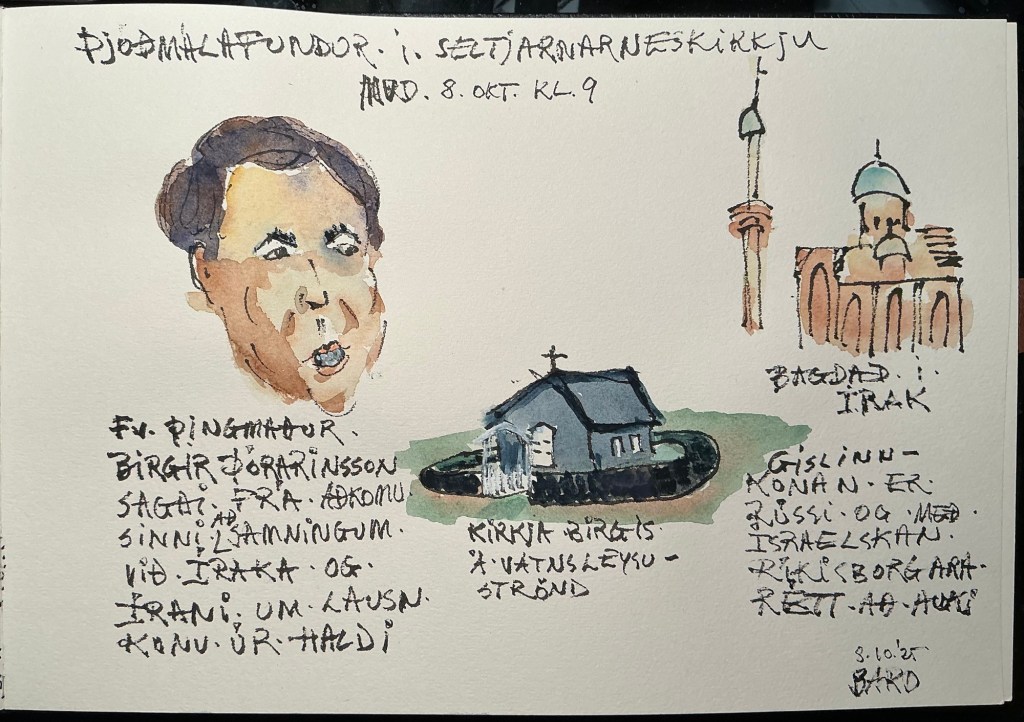 ÞJOÐMALAFUNDUR. í. SELTJARNARNESKIRKJU
MVD. 8. OKT. KL. 9
BAGDAD. í.
ÍRAK
FV. ÞINGMAÐUR.
BIRGIR ÞÓRARINSSON
SAGÐI. FRÁ. AÐKOMU.
SINNI AÐ SAMNINGUM.
VIÐ. ÍRAKA. OG.
ÍRANI. UM. LAUSN.
KONU. ÚR. HALDI
KIRKJA BIRGIS.
Á VATNSLEYSU-
STRÖND
GÍSLINN-
KONAN. ER.
RÚSSI. OG. MEÐ.
ISRAELSKAN.
RÍKISBORGARA-
RÉTT. AÐ. AUKI
8.10.'25
BARD